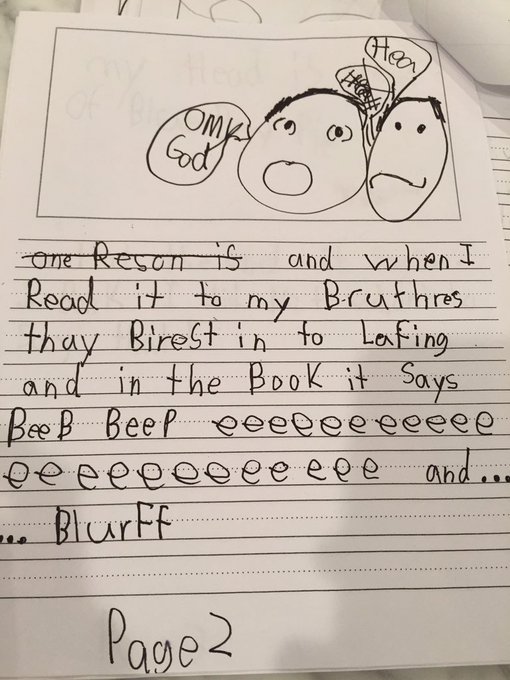 Hea
OMY
God
one Reson is and when I
Read it to my Bruthres
thay Birest in to Lafing
and in the Book it Says
BeeB BeeP eeeeeeeeeee
ee eeeeeeeee eee and...
... BlurFF
Page 2